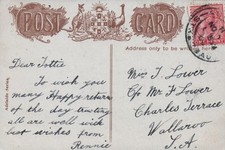 POST CARD
Address only to be written here
Dear Tottie
To wish you
many Happy return
of the day trusting
all are well with
best wishes from
Ronnie
Mrs T. Lower
C/o Mr F Lower
Charles Terrace
Wallaroo
S.A.